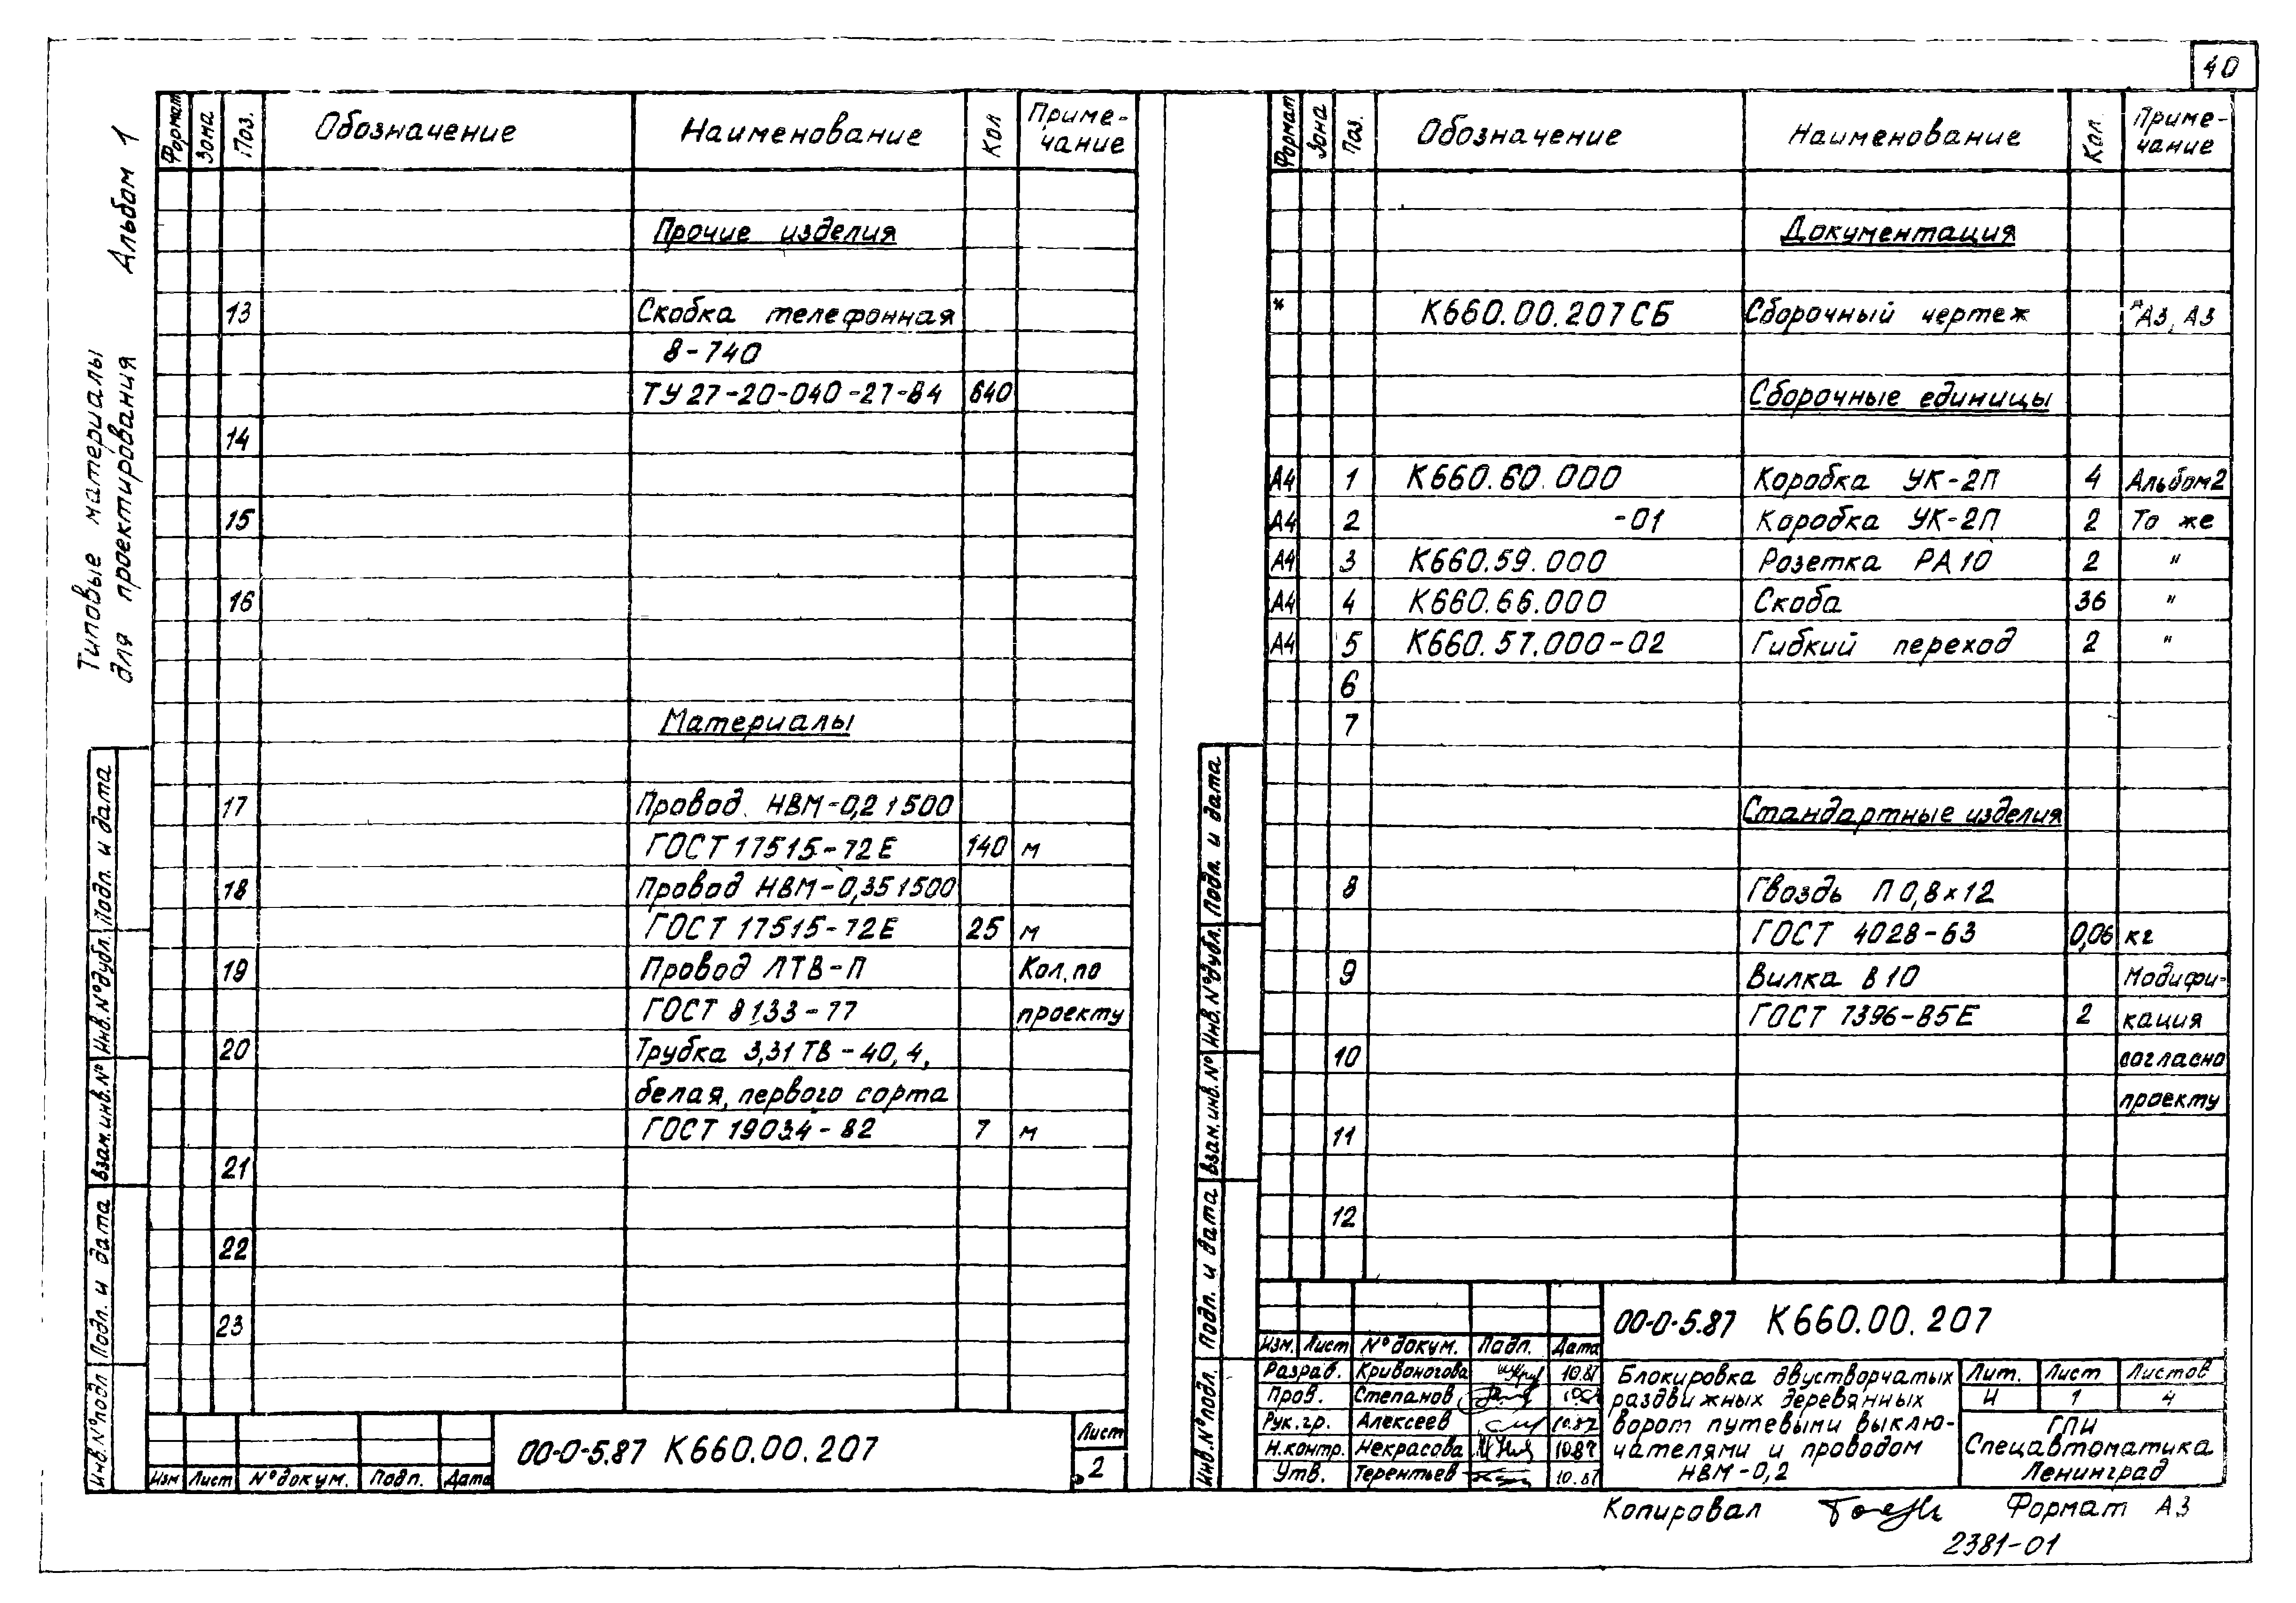 40
Альбом 1
Типовые материалы
для проектирования
Формат Зона Поз. Обозначение Наименование Кол Приме-
чание
Прочие изделия
13 Скобка телефонная
8-740
ТУ 27-20-040-27-84 640
14
15
16
Материалы
17 Провод НВМ-0,2 1500
ГОСТ 17515-72Е 140 м
18 Провод НВМ-0,35 1500
ГОСТ 17515-72Е 25 м
19 Провод ЛТВ-П Кол. по
ГОСТ 8133-77 проекту
20 Трубка 3,31ТВ-40, 4,
белая, первого сорта
ГОСТ 19034-82 7 м
21
22
23
Инв. № подл Подп. и дата Взам. инв. № Инв. № дубл. Подп. и дата
Изм Лист № докум. Подп. Дата
00-0-5.87 К660.00.207
Лист
2
Формат Зона Поз. Обозначение Наименование Кол. Приме-
чание
Документация
* К660.00.207СБ Сборочный чертеж *А3, А3
Сборочные единицы
А4 1 К660.60.000 Коробка УК-2П 4 Альбом 2
А4 2 -01 Коробка УК-2П 2 То же
А4 3 К660.59.000 Розетка РА10 2 "
А4 4 К660.66.000 Скоба 36 "
А4 5 К660.57.000-02 Гибкий переход 2 "
6
7
Стандартные изделия
8 Гвоздь П 0,8х12
ГОСТ 4028-63 0,06 кг
9 Вилка В10 Модифи-
ГОСТ 7396-85Е 2 кация
10 согласно
проекту
11
12
Инв. № подл. Подп. и дата Взам. инв. № Инв. № дубл. Подп. и дата
00-0-5.87 К660.00.207
Изм. Лист № докум. Подп. Дата
Разраб. Кривоногова 10.87
Пров. Степанов
Рук. гр. Алексеев 10.87
Н. контр. Некрасова 10.87
Утв. Терентьев 10.87
Блокировка двустворчатых
раздвижных деревянных
ворот путевыми выклю-
чателями и проводом
НВМ-0,2
Лит. Лист Листов
И 1 4
ГПИ
Спецавтоматика
Ленинград
Копировал Формат А3
2381-01